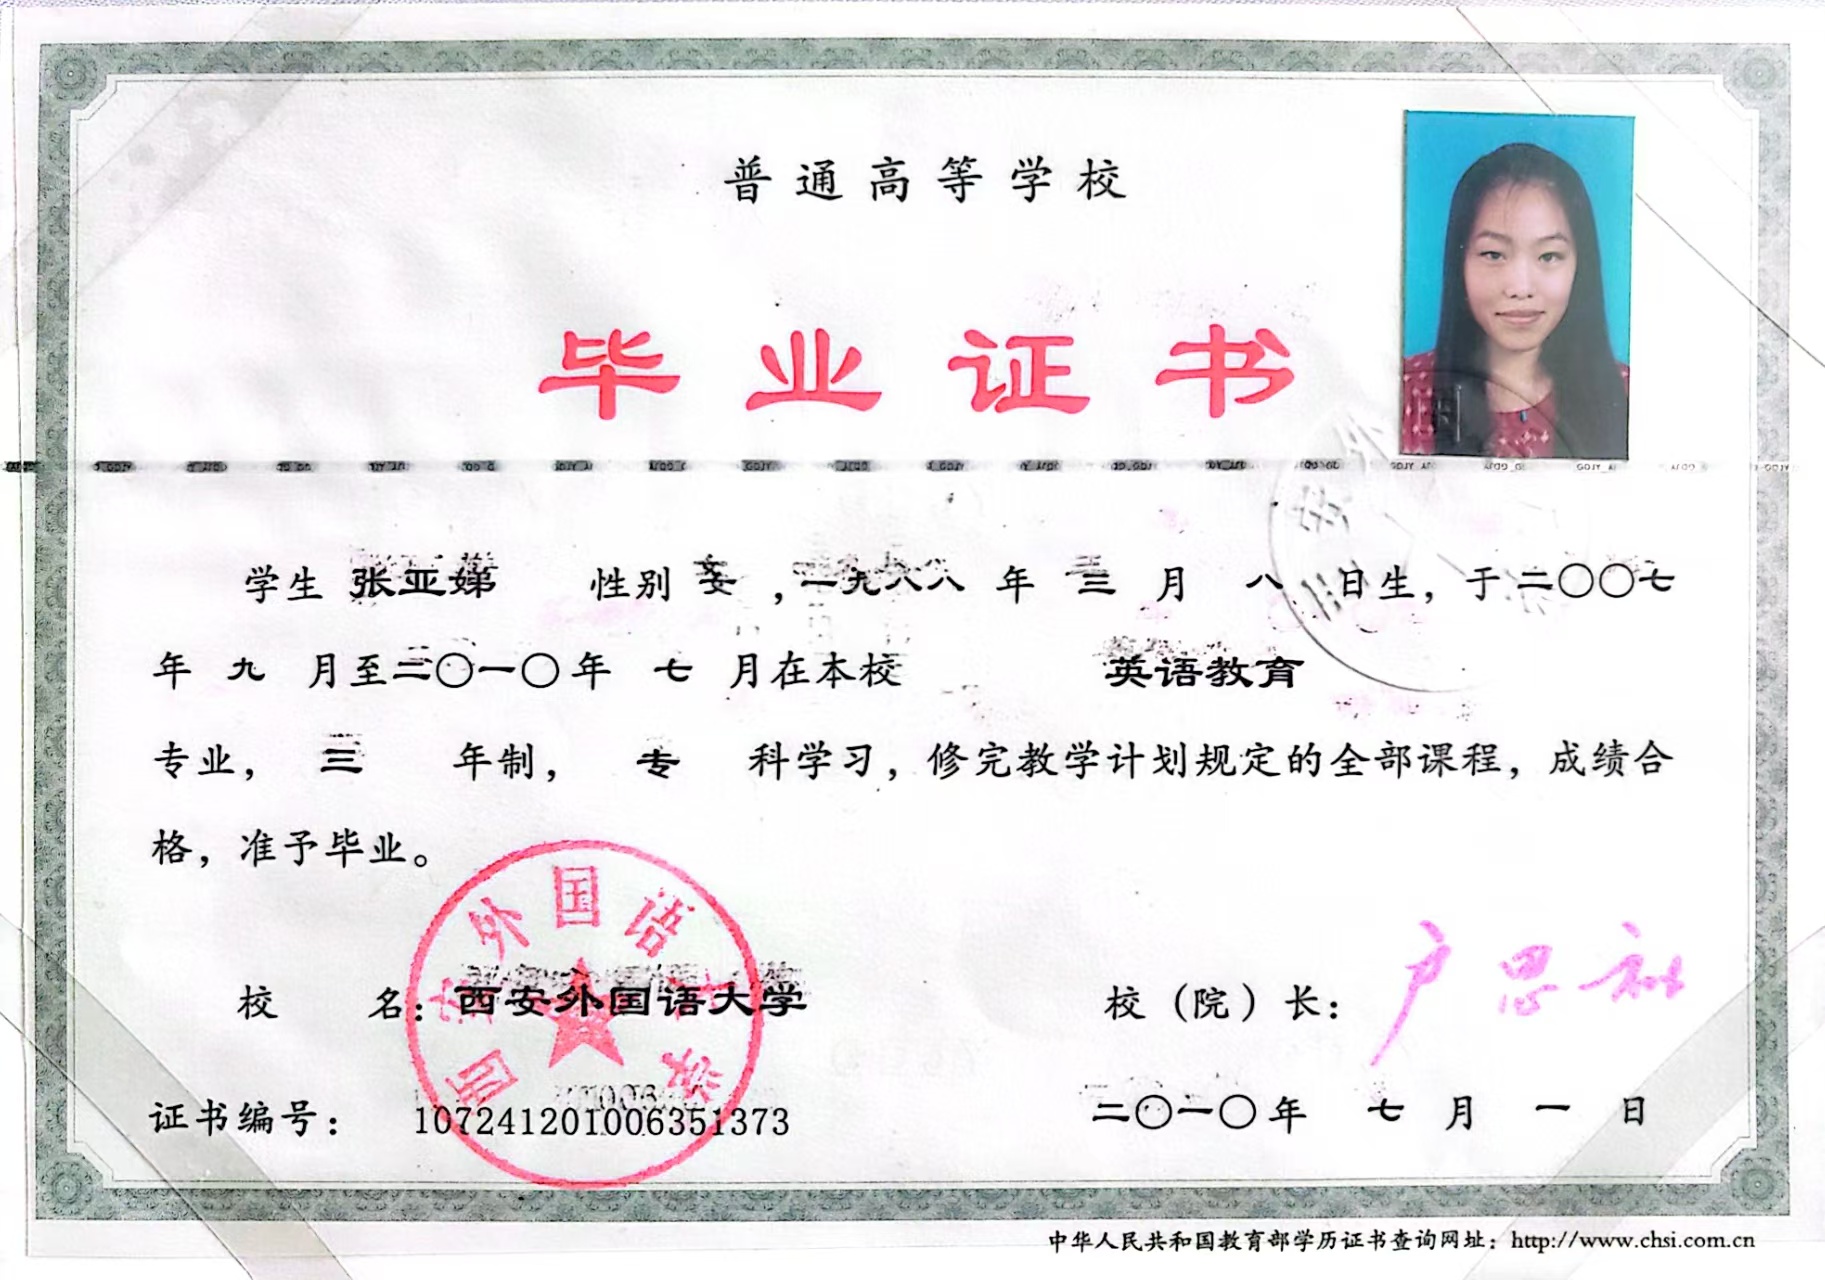 普通高等学校
毕业证书
学生 张亚娣 性别 女 ，一九八八 年 三 月 八 日生，于 二〇〇七
年 九 月至 二〇一〇 年 七 月在本校 英语教育
专业， 三 年制， 专 科学习，修完教学计划规定的全部课程，成绩合
格，准予毕业。
西安外国语大学
校 名：西安外国语大学 校（院）长：户思社
证书编号： 107241201006351373 二〇一〇年 七 月 一 日
中华人民共和国教育部学历证书查询网址：http://www.chsi.com.cn